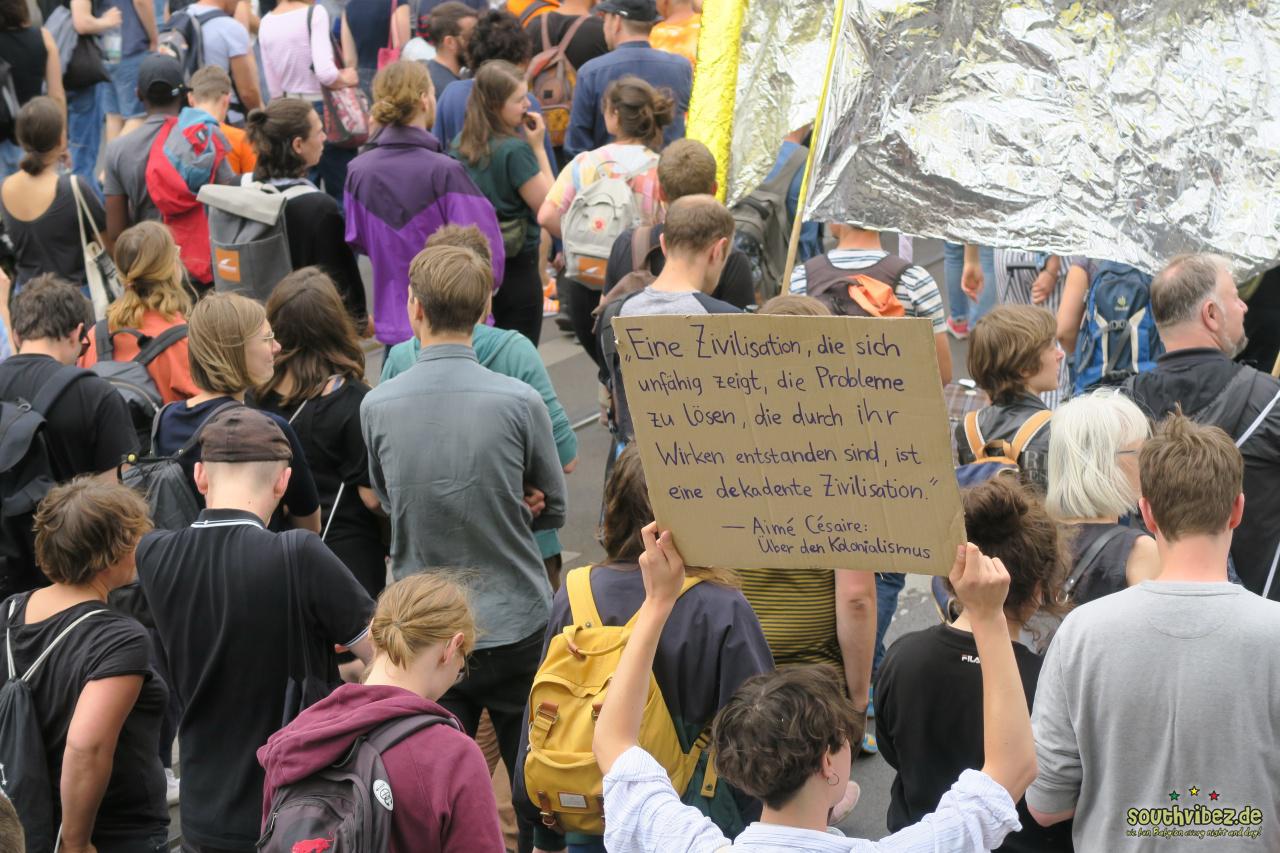 „Eine Zivilisation, die sich
unfähig zeigt, die Probleme
zu lösen, die durch ihr
Wirken entstanden sind, ist
eine dekadente Zivilisation."
— Aimé Césaire:
Über den Kolonialismus
FILA
southvibez.de
we bun Babylon every night and day!